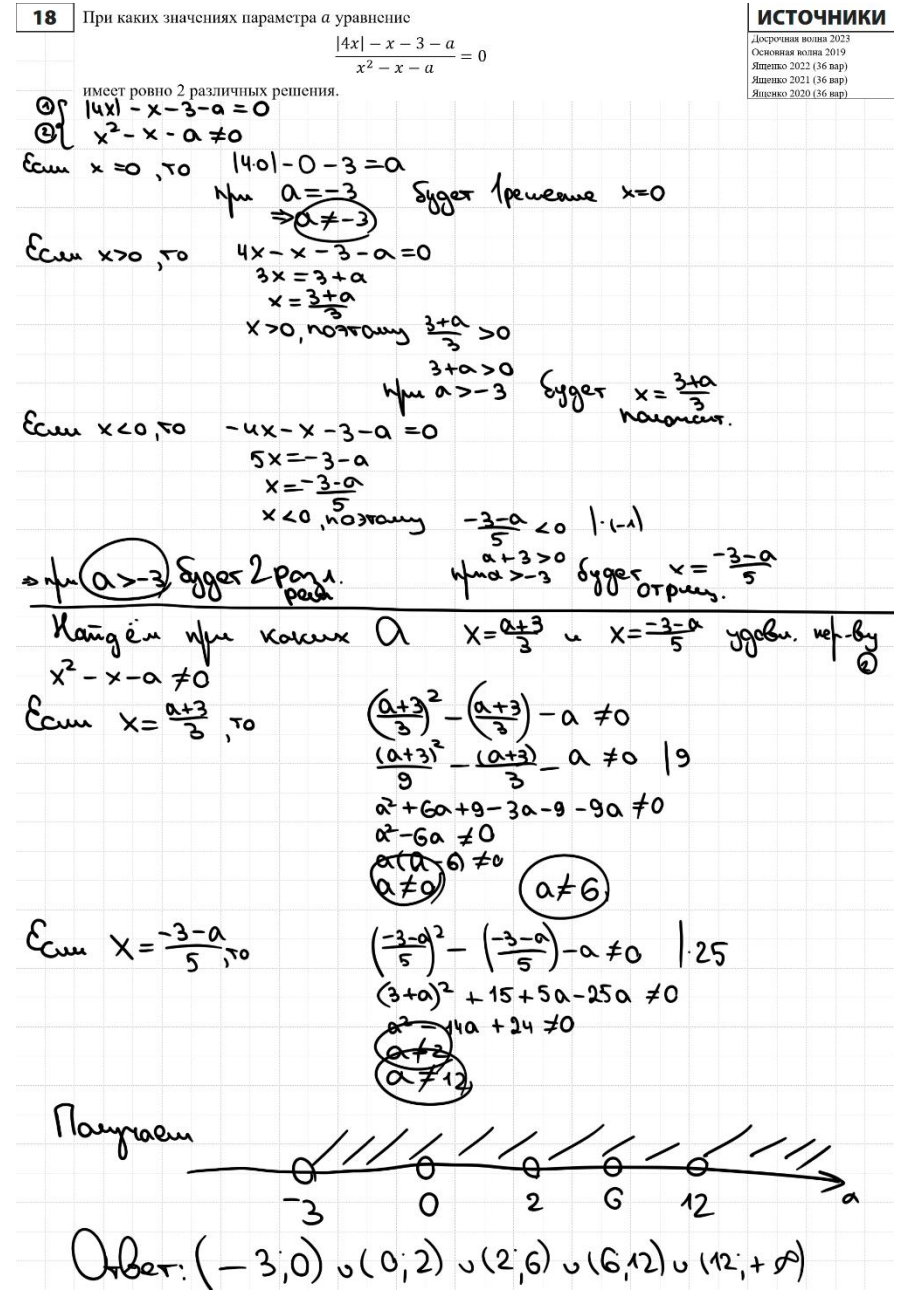 18 При каких значениях параметра a уравнение
|4x| − x − 3 − a / x² − x − a = 0
имеет ровно 2 различных решения.
ИСТОЧНИКИ
Досрочная волна 2023
Основная волна 2019
Ященко 2022 (36 вар)
Ященко 2021 (36 вар)
Ященко 2020 (36 вар)
① { |4x| − x − 3 − a = 0
② { x² − x − a ≠ 0
Если x = 0, то |4·0| − 0 − 3 = a
при a = −3 будет 1 решение x=0
⇒ a ≠ −3
Если x>0, то 4x − x − 3 − a = 0
3x = 3 + a
x = 3+a / 3
x>0, поэтому 3+a / 3 > 0
3+a>0
при a > −3 будет x = 3+a / 3
положит.
Если x<0, то −4x − x − 3 − a = 0
5x = −3 − a
x = −3−a / 5
x<0, поэтому −3−a / 5 < 0 |·(−1)
a + 3 > 0
⇒ при a > −3, будет 2 разл. реш. при a > −3 будет x = −3−a / 5
отриц.
Найдём при каких a x = a+3 / 3 и x = −3−a / 5 удовл. нер-ву ②
x² − x − a ≠ 0
Если x = a+3 / 3, то (a+3 / 3)² − (a+3 / 3) − a ≠ 0
(a+3)² / 9 − (a+3) / 3 − a ≠ 0 |9
a² + 6a + 9 − 3a − 9 − 9a ≠ 0
a² − 6a ≠ 0
a(a − 6) ≠ 0
a ≠ 0 a ≠ 6
Если x = −3−a / 5, то (−3−a / 5)² − (−3−a / 5) − a ≠ 0 |·25
(3+a)² + 15 + 5a − 25a ≠ 0
a² − 14a + 24 ≠ 0
a ≠ 2
a ≠ 12
Получаем
−3 0 2 6 12 a
Ответ: (−3; 0) ∪ (0; 2) ∪ (2; 6) ∪ (6; 12) ∪ (12; +∞)